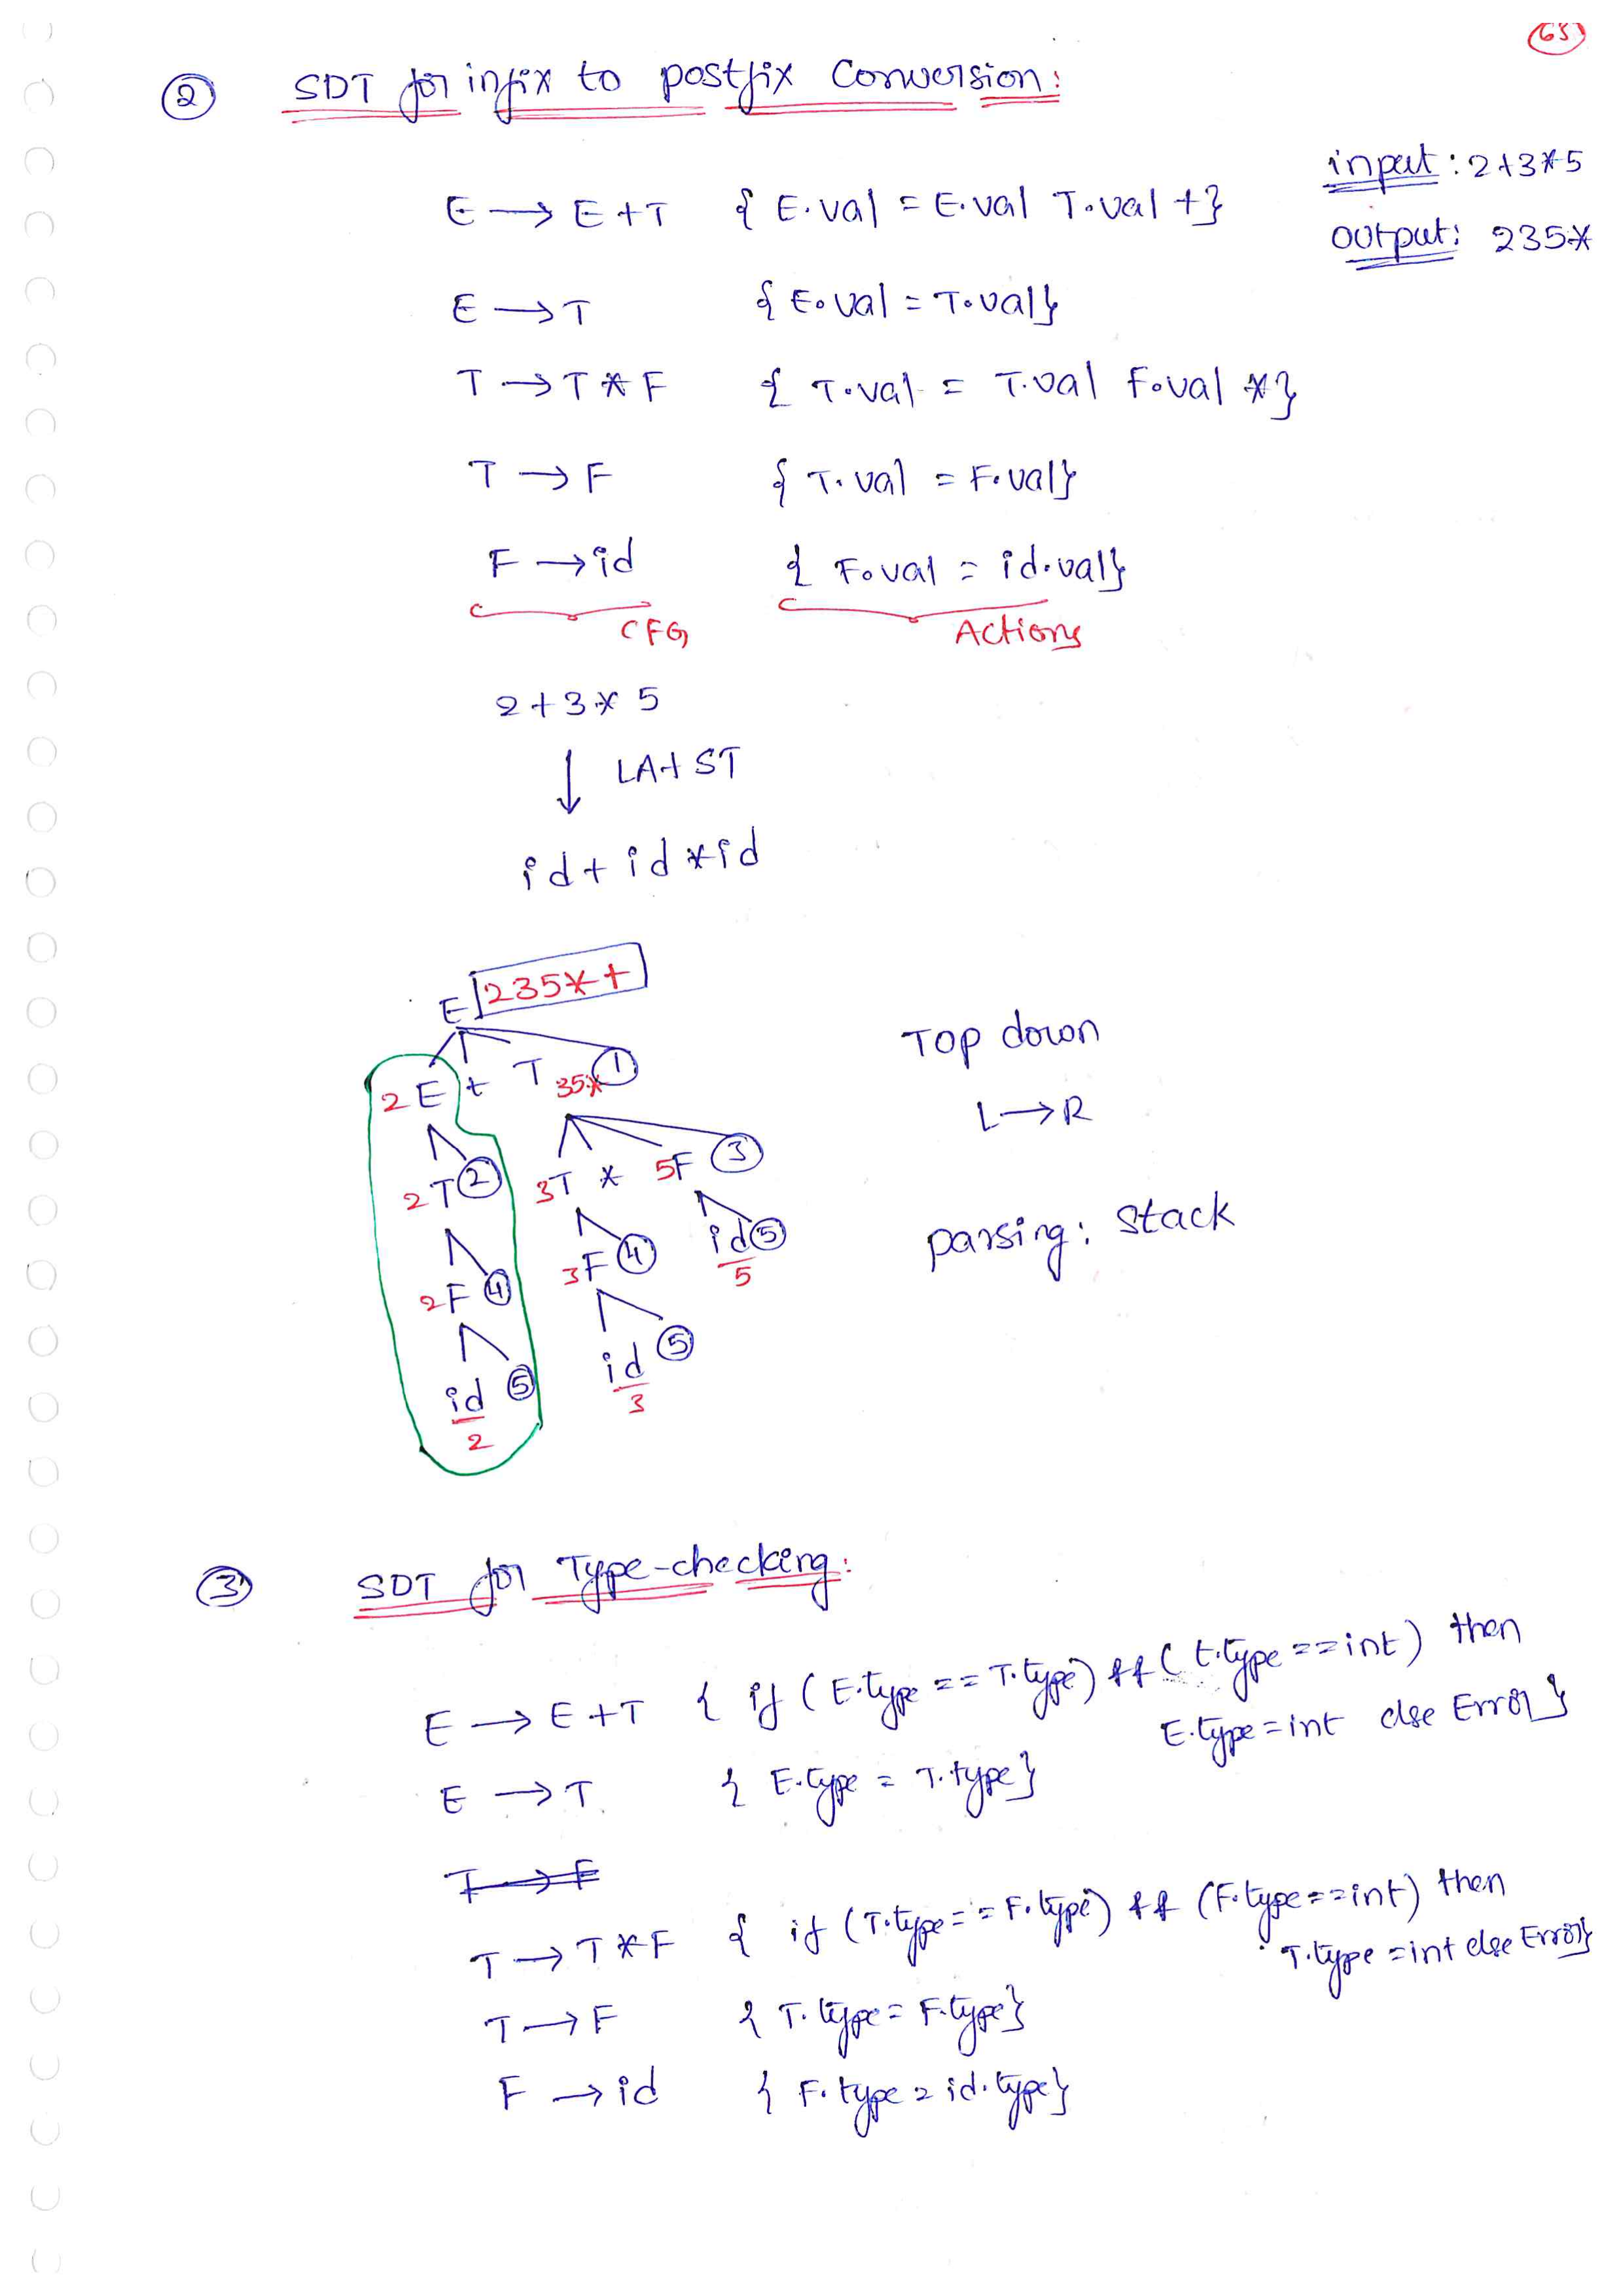 65
② SDT for infix to postfix Conversion:
input: 2+3*5
E → E+T { E.val = E.val T.val +}
output: 235*
E → T { E.val = T.val}
T → T * F { T.val = T.val F.val *}
T → F { T.val = F.val}
F → id { F.val = id.val}
CFG Actions
2+3*5
↓ LA+ST
id + id * id
E 235*+
Top down
2 E + T 35* ①
L → R
2 T ② 3T * 5F ③
2 F ④ 3F ④ id ⑤ 5
parsing: Stack
id ⑤ 2 id ⑤ 3
③ SDT for Type-checking:
E → E+T { if (E.type == T.type) && (t.type == int) then
E.type = int else Error}
E → T { E.type = T.type}
T → F
T → T*F { if (T.type == F.type) && (F.type == int) then
T.type = int else Error}
T → F { T.type = F.type}
F → id { F.type = id.type}